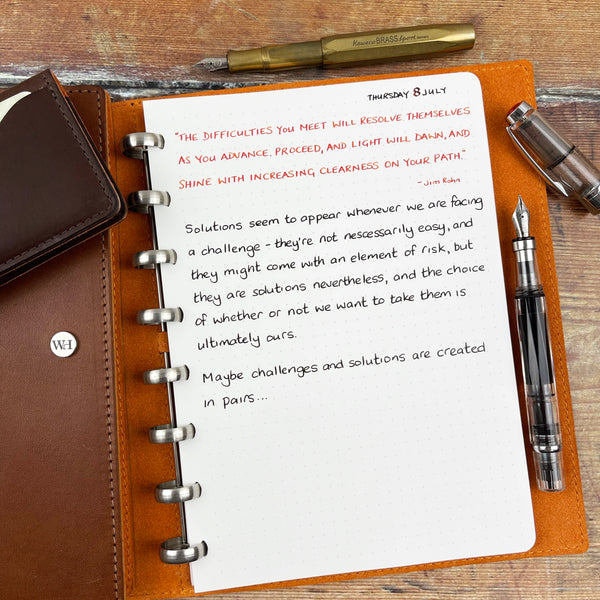 Kaweco BRASS Sport
THURSDAY 8 JULY
"THE DIFFICULTIES YOU MEET WILL RESOLVE THEMSELVES
AS YOU ADVANCE. PROCEED, AND LIGHT WILL DAWN, AND
SHINE WITH INCREASING CLEARNESS ON YOUR PATH."
- Jim Rohn
Solutions seem to appear whenever we are facing
a challenge - they're not nescessarily easy, and
they might come with an element of risk, but
they are solutions nevertheless, and the choice
of whether or not we want to take them is
ultimately ours.
Maybe challenges and solutions are created
in pairs...
WH